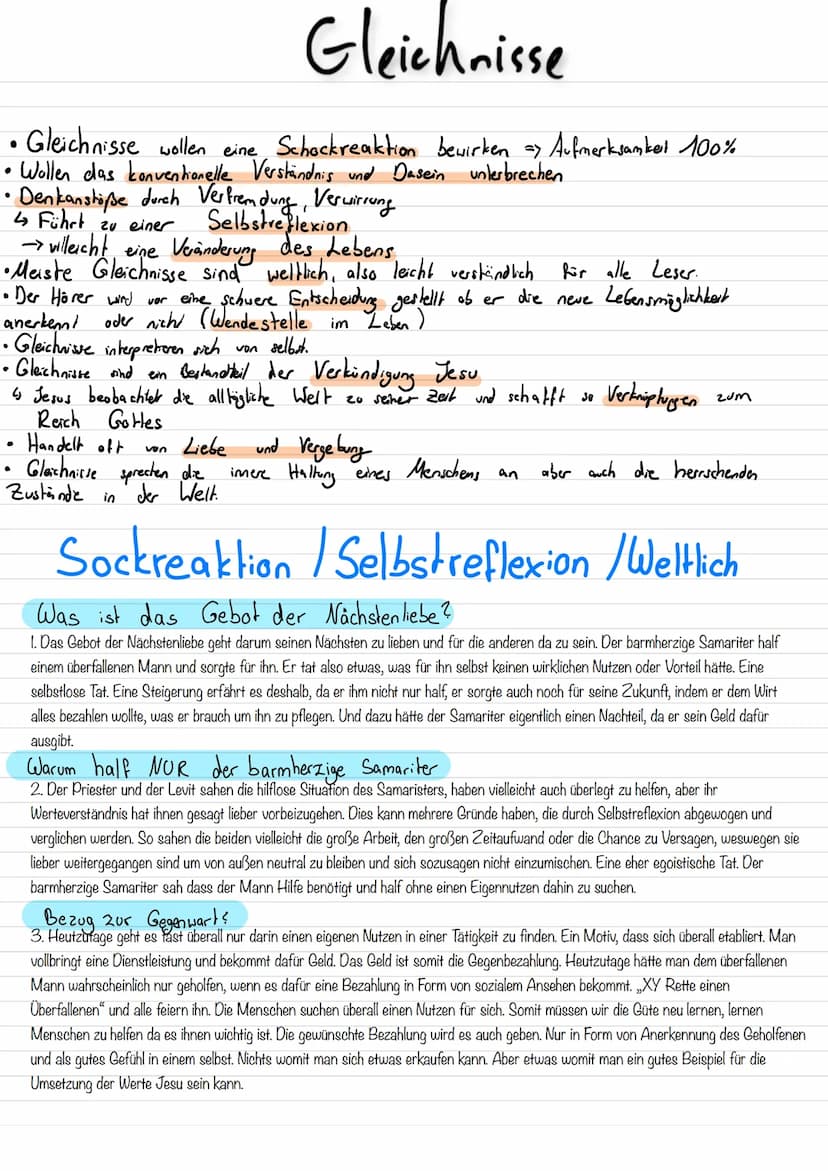 Gleichnisse
• Gleichnisse wollen eine Schockreaktion bewirken => Aufmerksamkeit 100%
• Wollen das konventionelle Verständnis und Dasein unterbrechen
• Denkanstöße durch Verfremdung, Verwirrung
↳ Führt zu einer Selbstreflexion
→ villeicht eine Veränderung des Lebens
• Meiste Gleichnisse sind weltlich, also leicht verständlich für alle Leser.
• Der Hörer wird vor eine schwere Entscheidung gestellt ob er die neue Lebensmöglichkeit
anerkennt oder nicht (Wendestelle im Leben)
• Gleichnisse interpretieren sich von selbst.
• Gleichnisse sind ein Bestandteil der Verkündigung Jesu
↳ Jesus beobachtet die alltägliche Welt zu seiner Zeit und schafft so Verknüpfungen zum
Reich Gottes
• Handelt oft von Liebe und Vergebung
• Gleichnisse sprechen die innere Haltung eines Menschens an aber auch die herrschenden
Zustände in der Welt.
Sockreaktion / Selbstreflexion / Weltlich
Was ist das Gebot der Nächstenliebe?
1. Das Gebot der Nächstenliebe geht darum seinen Nächsten zu lieben und für die anderen da zu sein. Der barmherzige Samariter half
einem überfallenen Mann und sorgte für ihn. Er tat also etwas, was für ihn selbst keinen wirklichen Nutzen oder Vorteil hätte. Eine
selbstlose Tat. Eine Steigerung erfährt es deshalb, da er ihm nicht nur half, er sorgte auch noch für seine Zukunft, indem er dem Wirt
alles bezahlen wollte, was er brauch um ihn zu pflegen. Und dazu hätte der Samariter eigentlich einen Nachteil, da er sein Geld dafür
ausgibt.
Warum half NUR der barmherzige Samariter
2. Der Priester und der Levit sahen die hilflose Situation des Samaristers, haben vielleicht auch überlegt zu helfen, aber ihr
Werteverständnis hat ihnen gesagt lieber vorbeizugehen. Dies kann mehrere Gründe haben, die durch Selbstreflexion abgewogen und
verglichen werden. So sahen die beiden vielleicht die große Arbeit, den großen Zeitaufwand oder die Chance zu Versagen, weswegen sie
lieber weitergegangen sind um von außen neutral zu bleiben und sich sozusagen nicht einzumischen. Eine eher egoistische Tat. Der
barmherzige Samariter sah dass der Mann Hilfe benötigt und half ohne einen Eigennutzen dahin zu suchen.
Bezug zur Gegenwart?
3. Heutzutage geht es fast überall nur darin einen eigenen Nutzen in einer Tätigkeit zu finden. Ein Motiv, dass sich überall etabliert. Man
vollbringt eine Dienstleistung und bekommt dafür Geld. Das Geld ist somit die Gegenbezahlung. Heutzutage hätte man dem überfallenen
Mann wahrscheinlich nur geholfen, wenn es dafür eine Bezahlung in Form von sozialem Ansehen bekommt. „XY Rette einen
Überfallenen“ und alle feiern ihn. Die Menschen suchen überall einen Nutzen für sich. Somit müssen wir die Güte neu lernen, lernen
Menschen zu helfen da es ihnen wichtig ist. Die gewünschte Bezahlung wird es auch geben. Nur in Form von Anerkennung des Geholfenen
und als gutes Gefühl in einem selbst. Nichts womit man sich etwas erkaufen kann. Aber etwas womit man ein gutes Beispiel für die
Umsetzung der Werte Jesu sein kann.